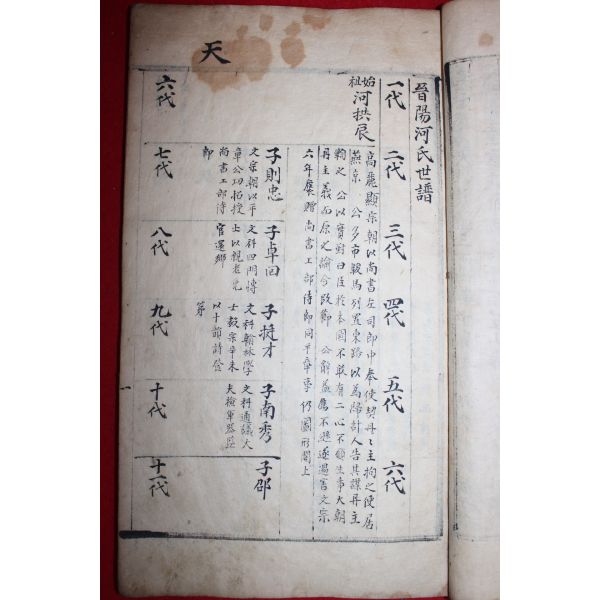 天
晉陽河氏世譜
一代
二代
三代
四代
五代
六代
始祖
河拱辰
高麗顯宗朝以尚書左司郎中奉使契丹丹主拘之使居
燕京 公多市駿馬列置東路以為歸計人告其謀丹主
鞫之 公以實對曰臣於本國不敢有二心不願生事大朝
丹主義而原之諭令改節 公辭益厲不遜遂遇害文宗
六年 贈尚書工部侍郎同平章事仍圖形閣上
子則忠
文宗朝以平
章公功招授
尚書工部侍
郎
子卓回
文科四門博
士以親老乞
官還鄉
子挺才
文科翰林學
士毅宗辛未
以十節詩登
第
子南秀
文科通議大
夫檢軍器監
子卲
六代
七代
八代
九代
十代
十一代
一